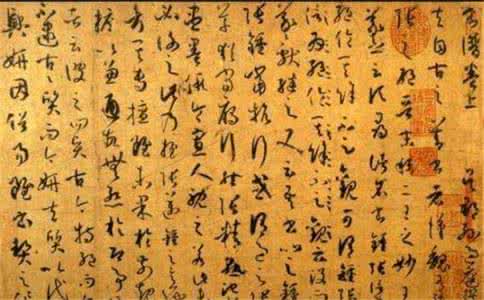 書譜卷上 吳郡孫過庭
夫自古之善書者漢魏有
張之絕晉末稱二王之妙王
羲之云頃尋諸名書鍾張信
為絕倫其餘不足觀可謂鍾張
云沒而
羲獻繼之又云吾書比之
鍾張鍾當抗行或謂過之
張草猶當雁行然張精熟池
盡墨假令寡人耽之若此
必謝之此乃推張邁鍾之意
考其專擅雖未果於前規
摭以兼通故無慚於即事
云彼之四賢古今特絕而今
不逮古古質而今妍夫質以代
興妍因俗易雖書契之